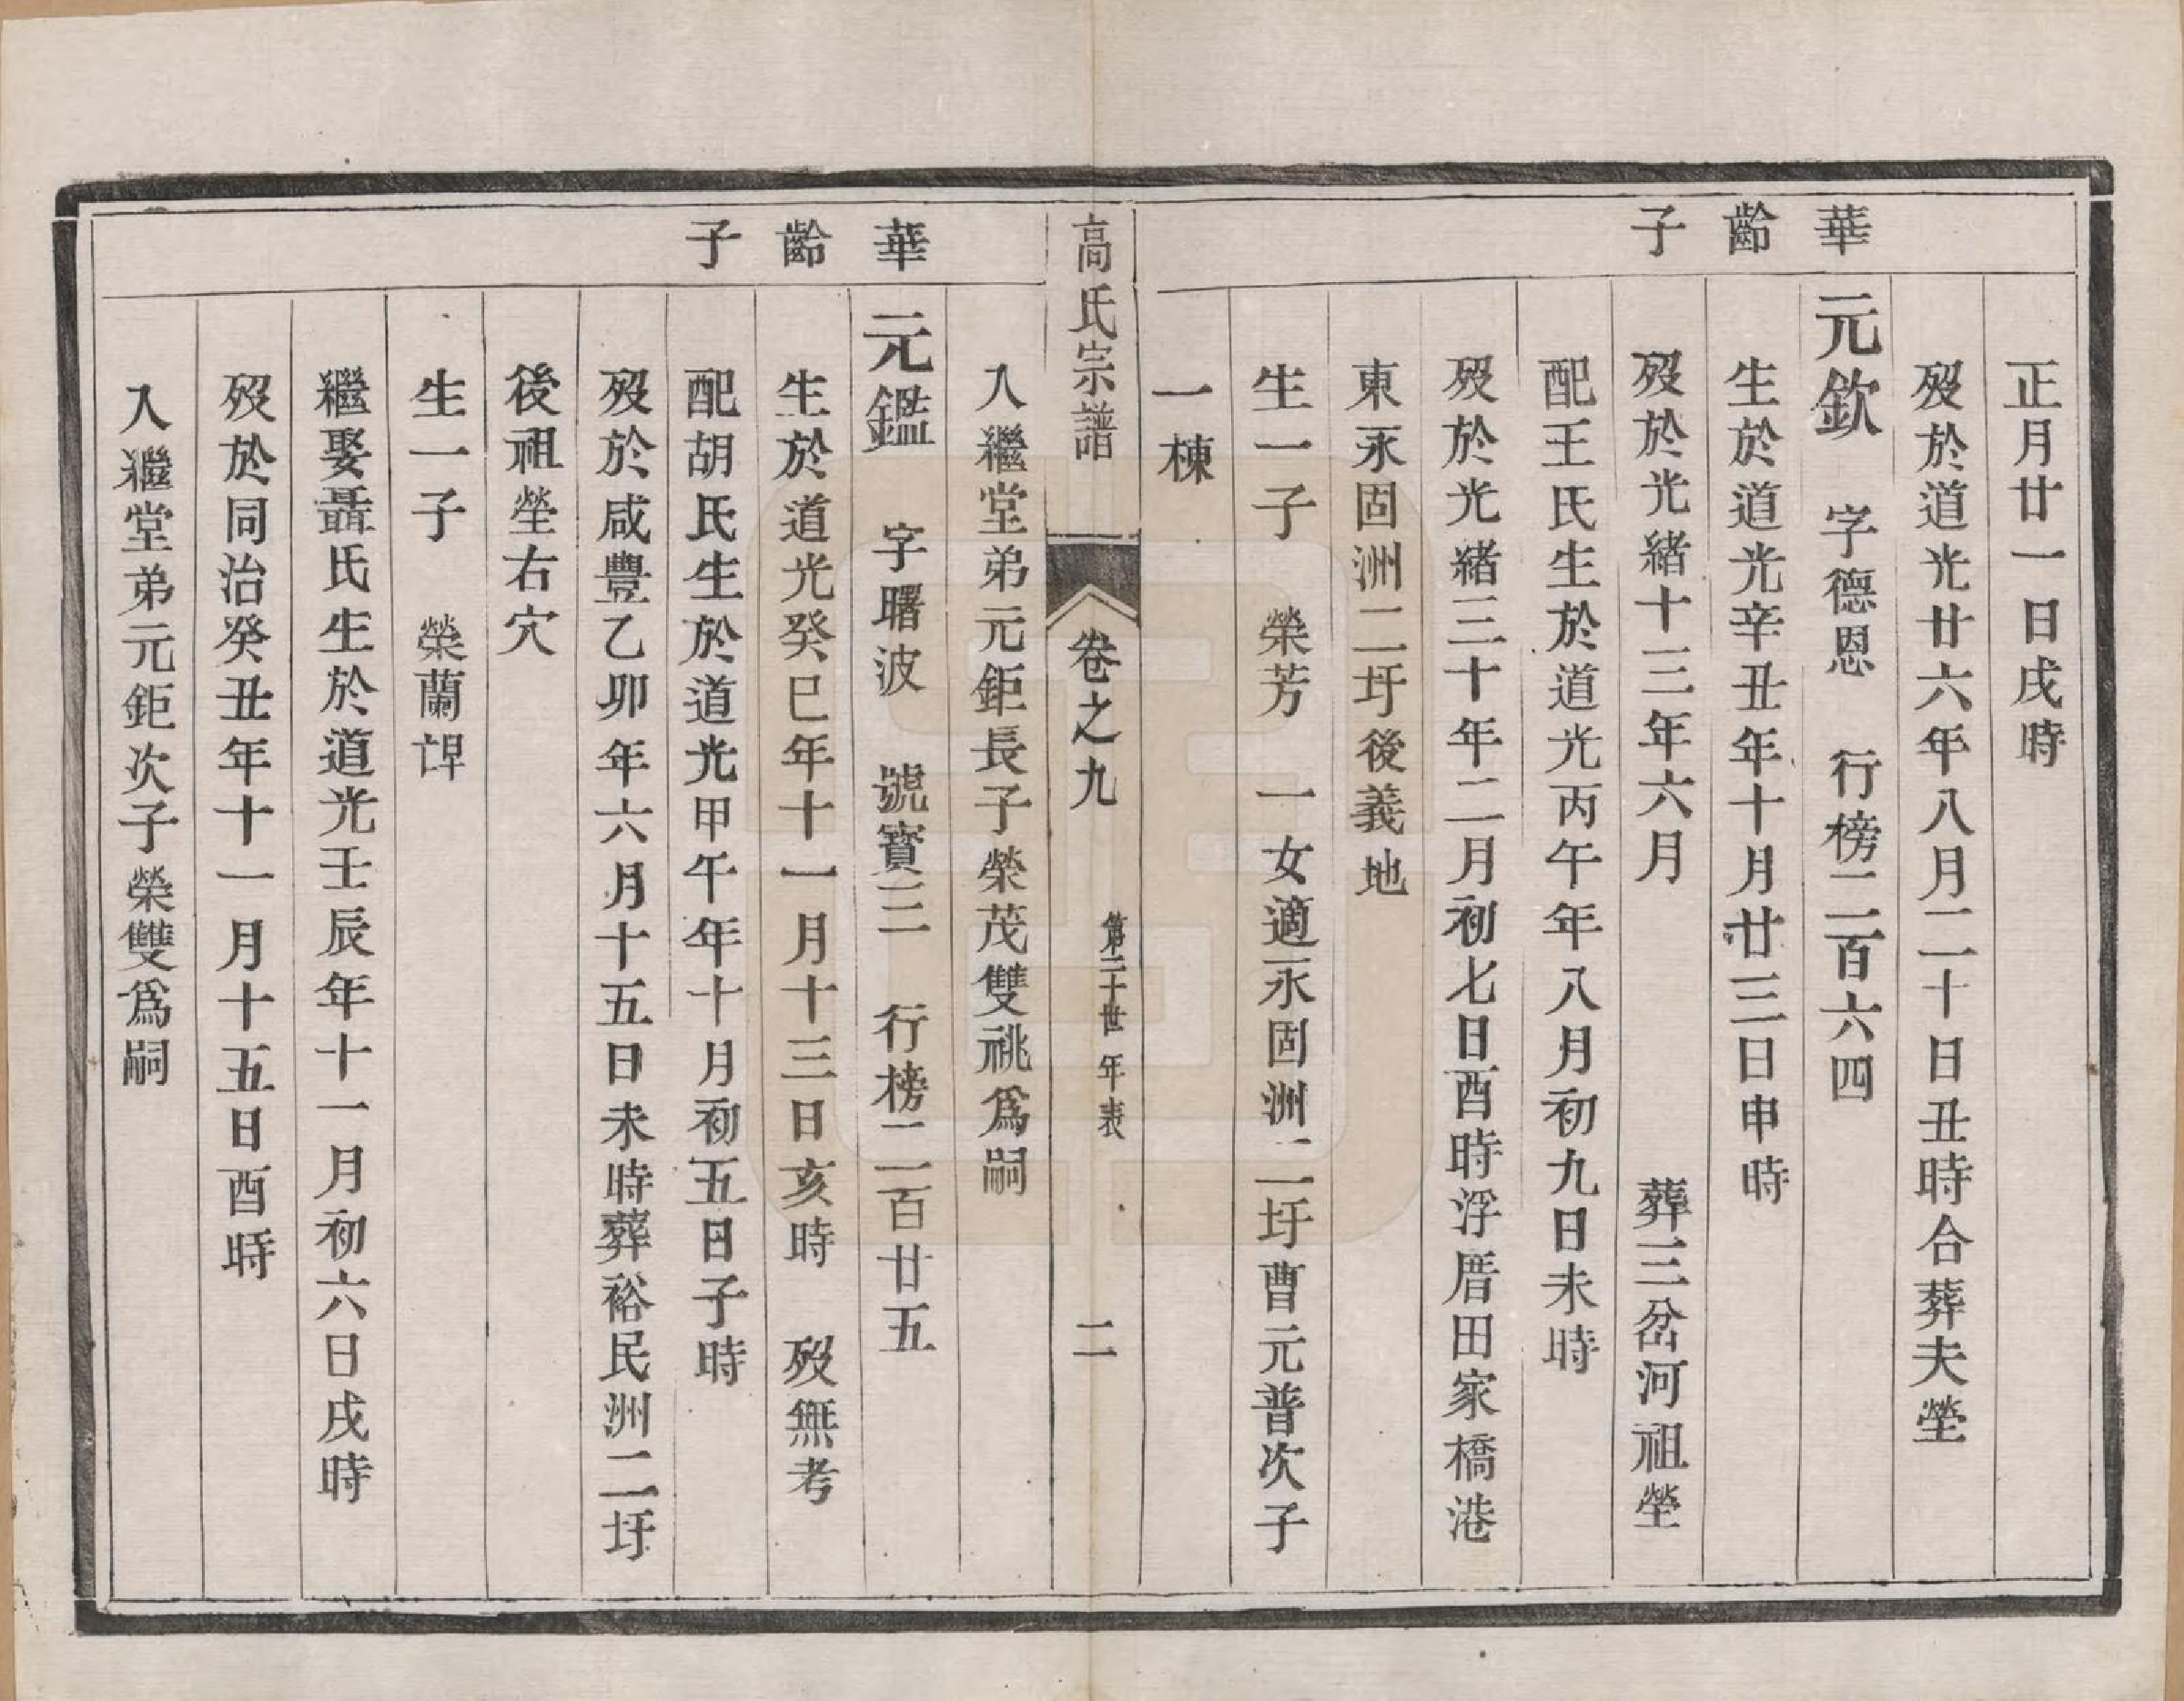 正月廿一日戌時
歿於道光廿六年八月二十日丑時合葬夫塋
華齡子
元欽　字德恩　行榜二百六四
生於道光辛丑年十月廿三日申時
歿於光緒十三年六月　葬三岔河祖塋
配王氏生於道光丙午年八月初九日未時
歿於光緒三十年二月初七日酉時浮厝田家橋港
東永固洲二圩後義地
生一子　榮芳　一女適永固洲二圩曹元普次子
一棟
高氏宗譜　卷之九　第二十世年表　二
入繼堂弟元鉅長子榮茂雙祧爲嗣
華齡子
元鑑　字曙波　號寶三　行榜二百廿五
生於道光癸巳年十一月十三日亥時　歿無考
配胡氏生於道光甲午年十月初五日子時
歿於咸豐乙卯年六月十五日未時葬裕民洲二圩
後祖塋右穴
生一子　榮蘭
繼娶聶氏生於道光壬辰年十一月初六日戌時
歿於同治癸丑年十一月十五日酉時
入繼堂弟元鉅次子榮雙爲嗣